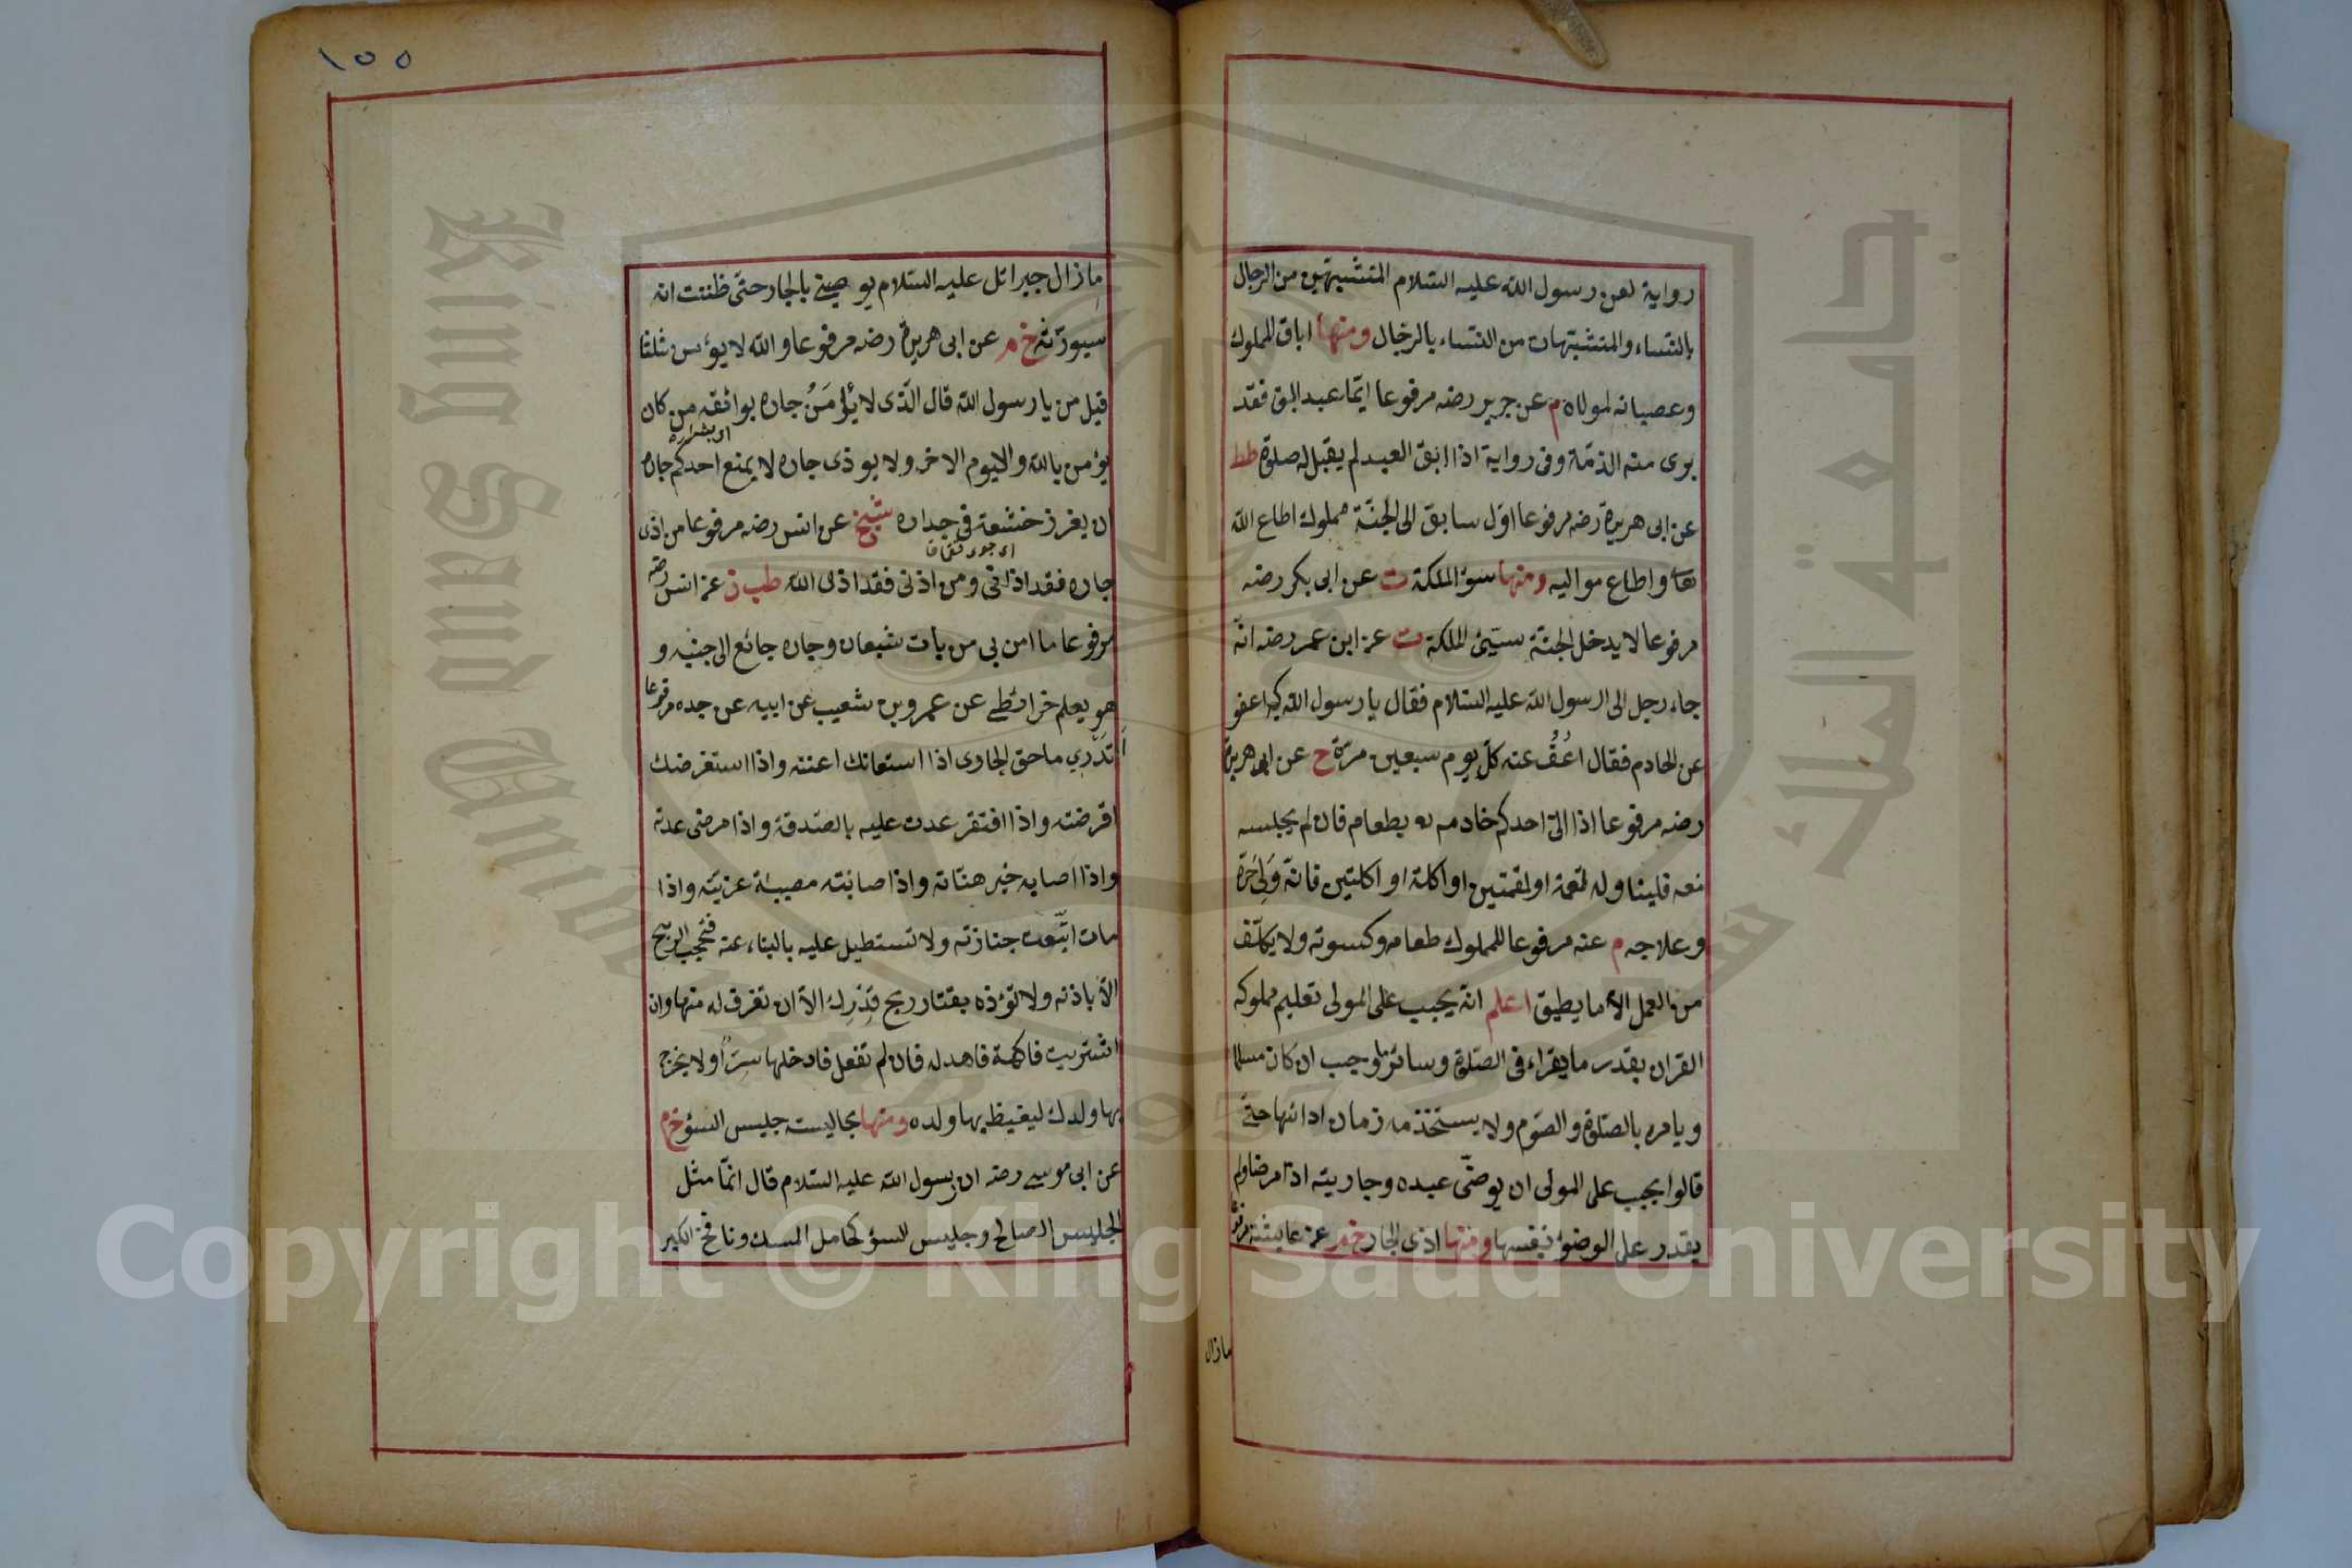 رواية لعن رسول الله عليه السلام المتشبهين من الرجال
بالنساء والمتشبهات من النساء بالرجال ومنها اباق المملوك
وعصيانه لمولاه م عن جرير رضه مرفوعا ايما عبد ابق فقد
برئ منه الذمة وفى رواية اذا ابق العبد لم يقبل له صلوة طط
عن ابى هريرة رضه مرفوعا اول سابق الى الجنة مملوك اطاع الله
تعا واطاع مواليه ومنها سوء الملكة ت عن ابى بكر رضه
مرفوعا لا يدخل الجنة سيئ الملكة ت عن ابن عمر رضه انه
جاء رجل الى الرسول الله عليه السلام فقال يا رسول الله كم اعفو
عن الخادم فقال اعف عنه كل يوم سبعين مرة خ عن ابى هريرة
رضه مرفوعا اذا اتى احدكم خادمه بطعام فان لم يجلسه
معه فليناوله لقمة او لقمتين او اكلة او اكلتين فانه ولى حره
وعلاجه م عنه مرفوعا للمملوك طعامه وكسوته ولا يكلف
من العمل الا ما يطيق اعلم انه يجب على المولى تعليم مملوكه
القران بقدر ما يقراء فى الصلوة وسائر ما وجب ان كان مسلما
ويامره بالصلوة والصوم ولا يستخدمه زمان ادائها حتى
قالوا يجب على المولى ان يوضئ عبده وجاريته اذا مرضا ولم
يقدر على الوضوء بنفسها ومنها اذى الجار خ م عن عايشة مرفوعا
مازال
١٥٥
مازال جبرائل عليه السلام يوصينى بالجار حتى ظننت انه
سيورثه خ م عن ابى هريرة رضه مرفوعا والله لا يؤمن ثلثا
قيل من يا رسول الله قال الذى لا يؤمن جاره بوائقه من كان
يؤمن بالله واليوم الاخر ولا يوذى جاره لا يمنع احدكم جاره
ان يغرز خشبة فى جداره شيخ عن انس رضه مرفوعا من اذى
جاره فقد اذانى ومن اذنى فقد اذى الله طب ز عن انس رضه
مرفوعا ما امن بى من بات شبعان وجاره جائع الى جنبه و
هو يعلم خرائطى عن عمرو بن شعيب عن ابيه عن جده مرفوعا
اتدرى ما حق الجار اذا استعانك اعنته واذا استقرضك
اقرضته واذا افتقر عدت عليه بالصدقة واذا مرض عدته
واذا اصابه خير هناته واذا اصابته مصيبة عزيته واذا
مات اتبعت جنازته ولا تستطيل عليه بالبناء عنه فتحجب الريح
الا باذنه ولا تؤذه بقتار ريح قدرك الا ان تغرف له منها وان
اشتريت فاكهة فاهد له فان لم تفعل فادخلها سرا ولا يخرج
بها ولدك ليغيظ بها ولده ومنها مجاليسة جليس السوء خ م
عن ابى موسى رضه ان رسول الله عليه السلام قال انما مثل
الجليس الصالح وجليس السوء كحامل المسك ونافخ الكير
King Saud University
جامعة الملك سعود
1957
Copyright © King Saud University